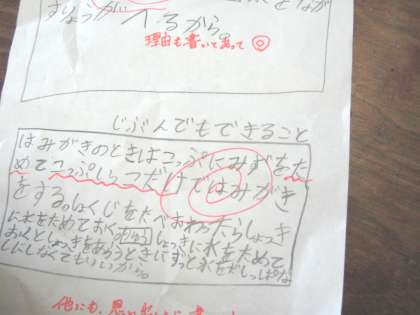 すりょうが
へるから。
理由も書いてあって◎
じぶんでもできること
はみがきのときはコップにみずをた
めてコップいっこだけではみがき
をする。しょくじをたべおわったらしょっき
に水をためておく りゆう しょっきに水をためて
おくとしょっきをあらうときにずっと水をだしっぱな
しにしなくてもいいから。
他にも、思い